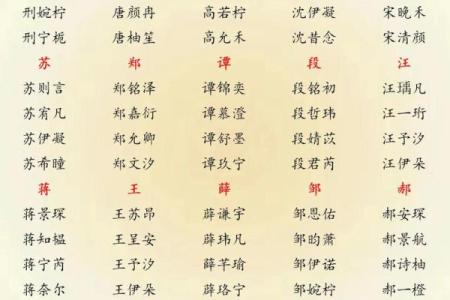 刑婉柠 唐颜冉 高若柠 沈伊凝 宋晚禾
刑宁栀 唐柚笙 高允禾 沈昔念 宋清颜
苏 郑 谭 段 汪
苏则言 郑铭泽 谭锦奕 段铭初 汪瑀凡
苏宥凡 郑嘉衍 谭慕澄 段哲玮 汪一珩
苏伊凝 郑允卿 谭舒墨 段婧苡 汪予汐
苏希瞳 郑文汐 谭玖宁 段君芮 汪伊朵
蒋 王 薛 邹 郝
蒋景琛 王苏昂 薛谦宇 邹恩佑 郝安琛
蒋知韫 王呈安 薛玮凡 邹昀萧 郝景航
蒋宁芮 王予汐 薛芊瑜 邹伊诺 郝诗柚
蒋奈尔 王伊朵 薛珞宁 邹婉柠 郝一橙